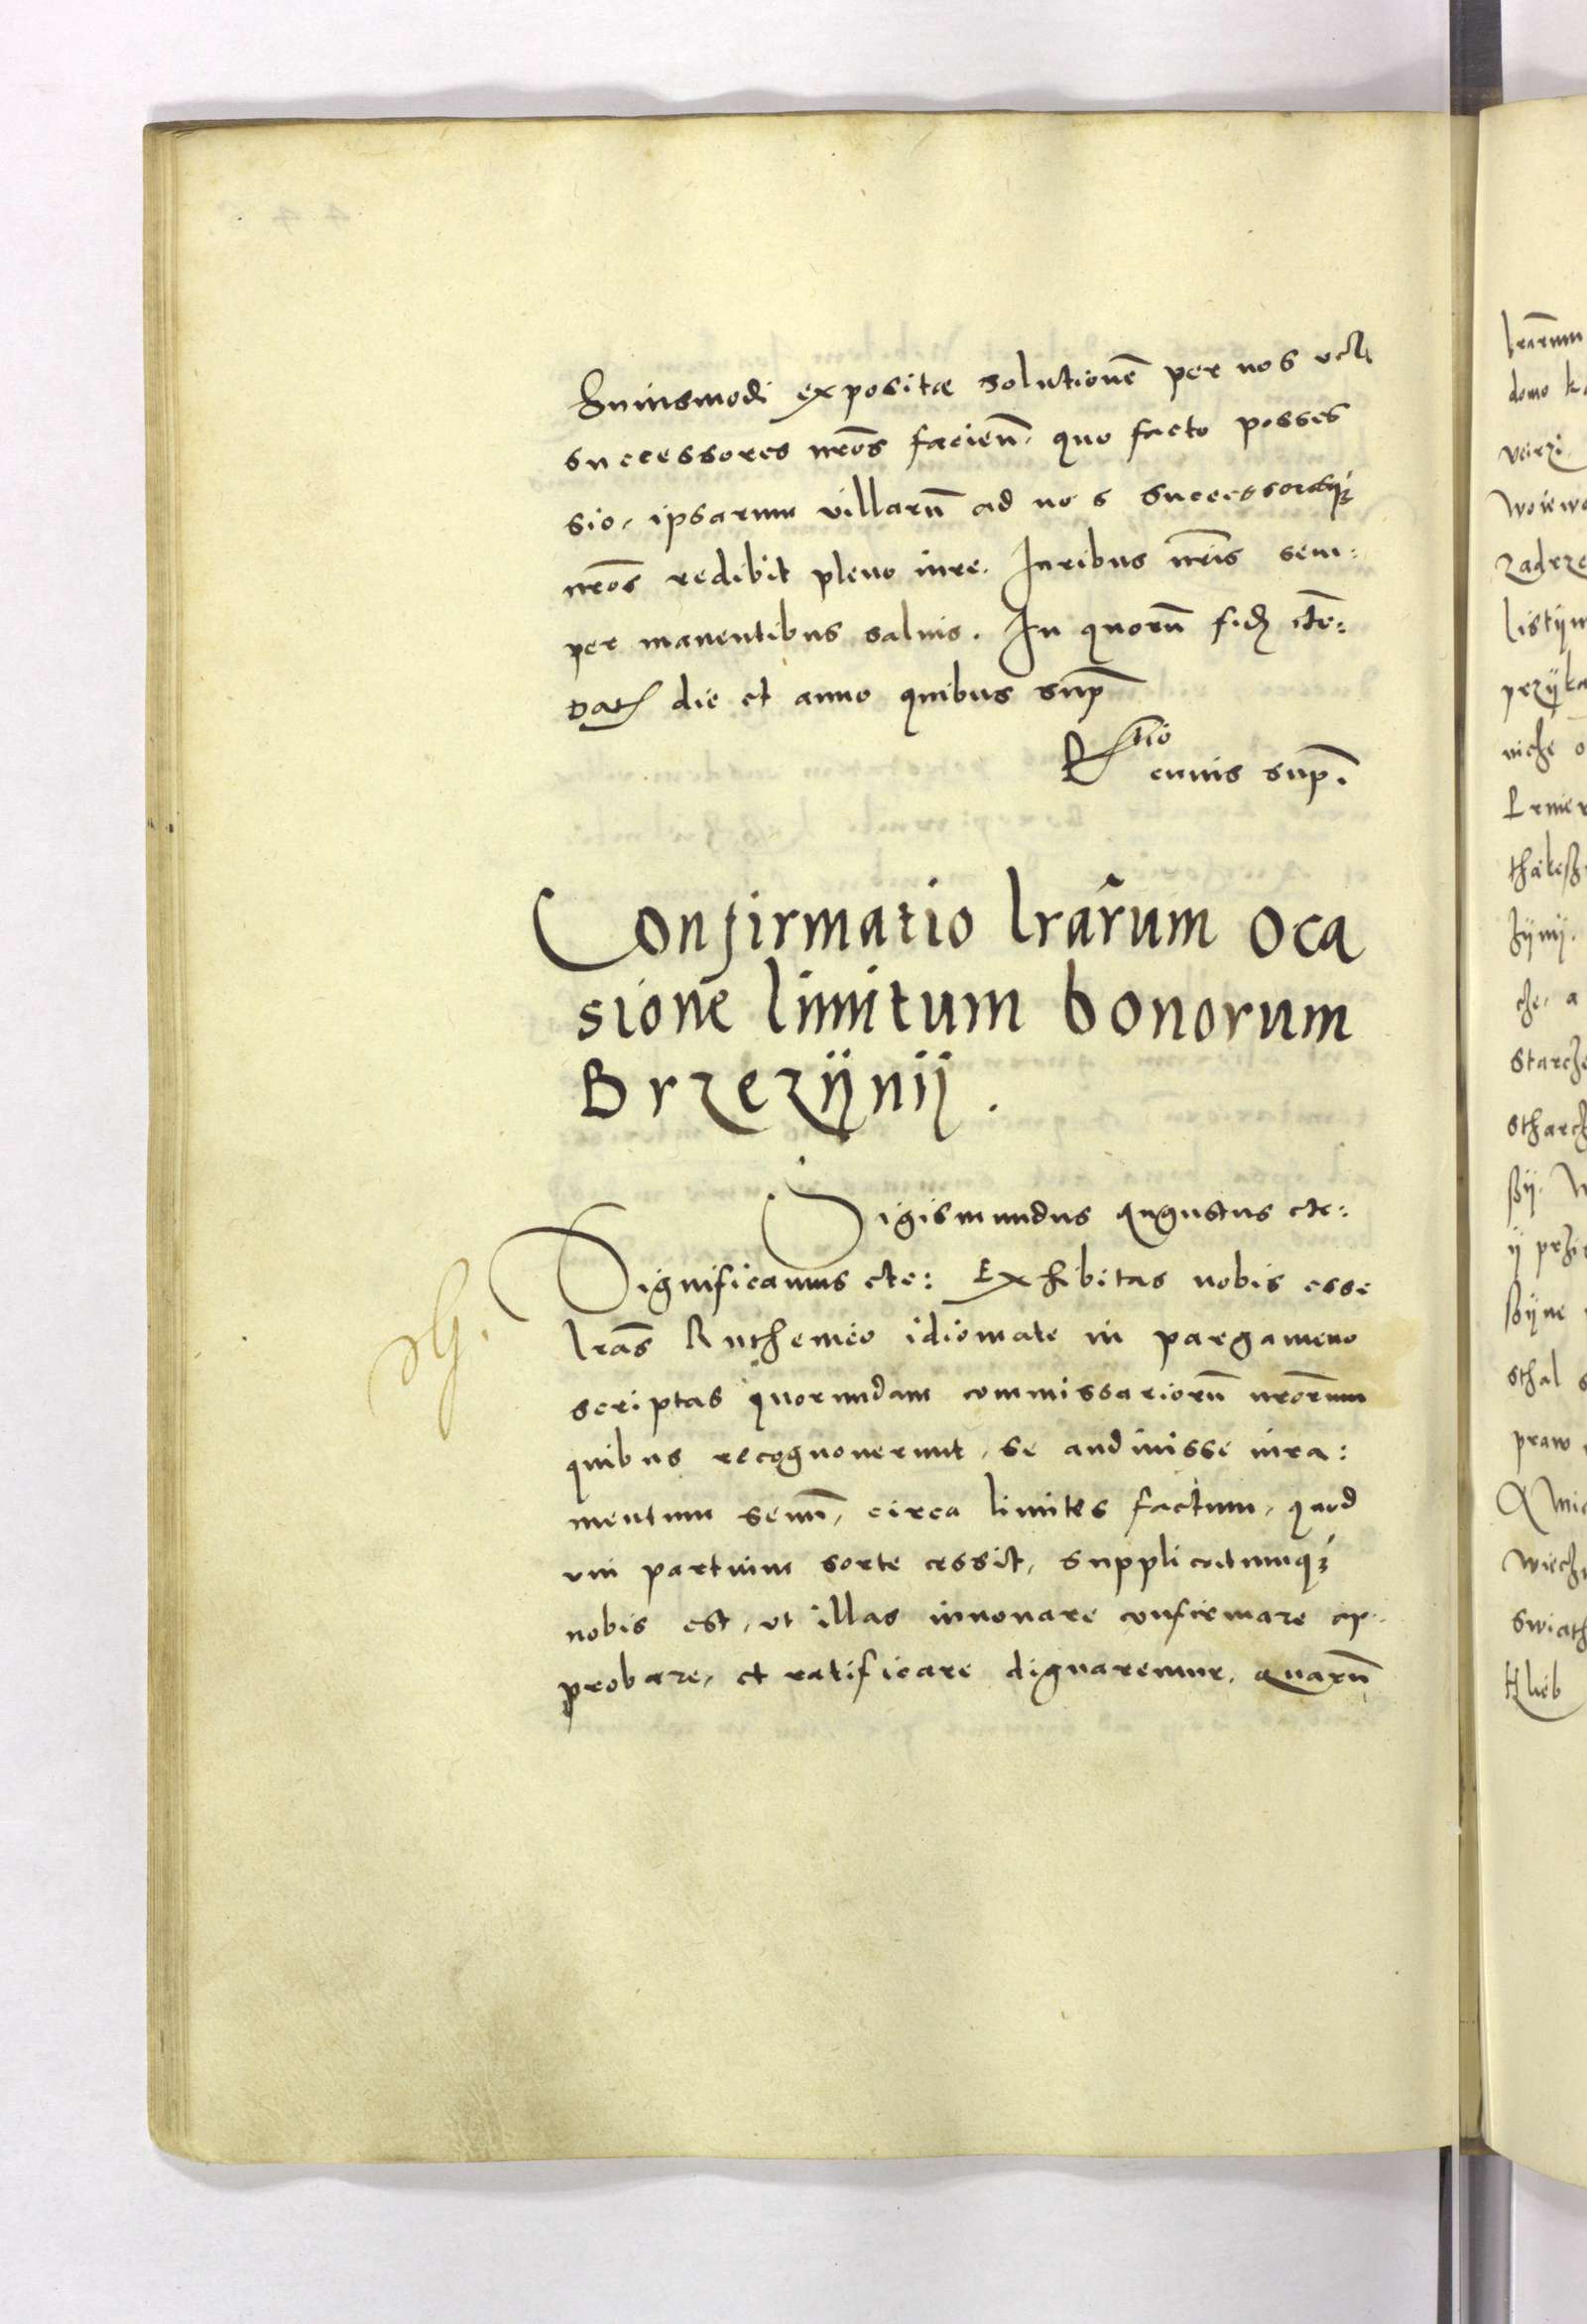 huiusmodi expositæ solutionẽ per nos vel
successores nr̃os facien̄, quo facto posses
sio, ipsarum villarũ ad nos successoresq;
nr̃os redibit pleno iure. Iuribus nr̃is sem:
per manentibus saluis. In quorũ fidẽ etc:
Dat die et anno quibus sup̃
R̃tio
cuius sup̃.
Confirmatio lrãrum oca
sione limitum bonorum
Brzezijnij.
Sigismundus Augustus etc:
Significamus etc: Exhibitas nobis esse
lrãs Ruthenico idiomate in pargameno
scriptas quorundam commissariorũ nr̃orum
quibus recognouerunt, se audiuisse iura:
mentum senũ, circa limites factum, quod
vni partium sorte cessit, supplicatumq;
nobis est, vt illas innouare confirmare ap
probare, et ratificare dignaremur. Quarũ
lrãrum
domo
Woiew
zadrze
listijw
przijka
niche o
thakeß
che. a
starche
stharch
ßij. W
ßijne
sthal s
praw
wiech
swiath
Hlieb